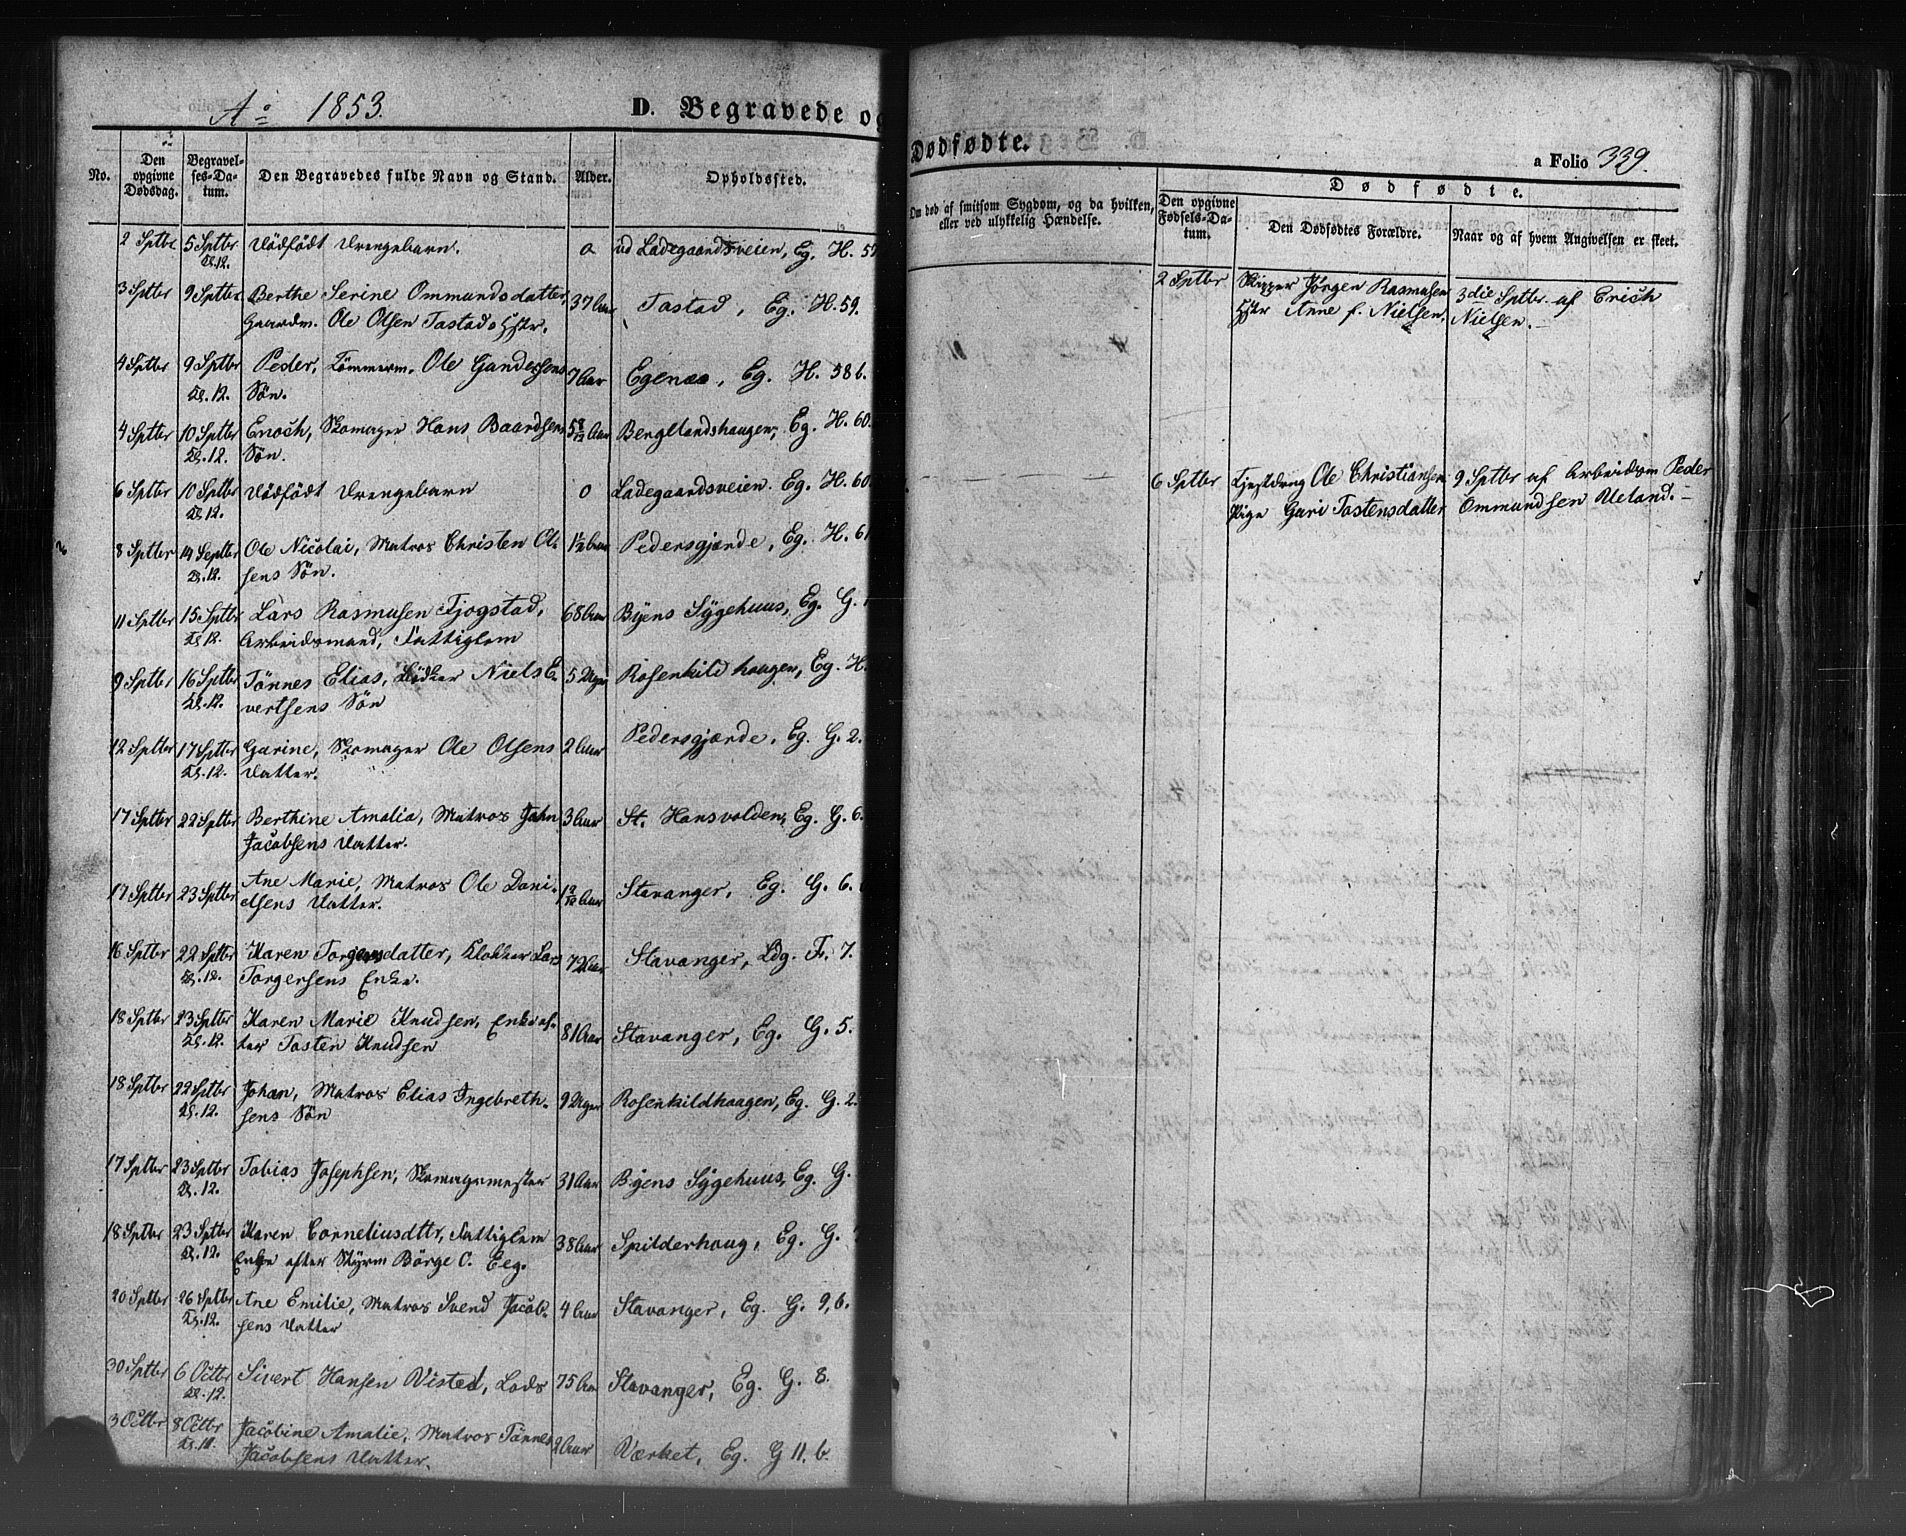 Ao 1853.
D. Begravede og
Dødfødte.
a Folio 339.
No.
Den opgivne Dødsdag.
Begravel-
ses-Da-
tum.
Den Begravedes fulde Navn og Stand.
Alder.
Opholdssted.
Om død af smitsom Sygdom, og da hvilken,
eller ved ulykkelig Hændelse.
Dødfødte.
Den opgivne
Fødsels-Da-
tum.
Den Dødfødtes Forældre.
Naar og af hvem Angivelsen er skeet.
2 Sptbr 5 Sptbr Dödfödt Drengebarn. 0 Ladegaardsveien, Eg. H. 59
2 Sptbr Skipper Jørgen Rasmusen 3die Sptbr. af Erich
Hstr Anne f. Nielsen. Nielsen.
3 Sptbr 9 Sptbr Berthe Serine Ommundsdatter, 37 Aar Tastad, Eg. H. 59.
Gaardm. Ole Olsen Tastads Hstr.
4 Sptbr 9 Sptbr Peder, Tömmerm. Ole Gundersens 7 Aar Egenæs, Eg. H. 58 b.
12. Sön.
4 Sptbr 10 Sptbr Enoch, Skomager Hans Baardsens 5 8/12 Aar Berglandshaugen, Eg. H. 60.
12. Sön.
6 Sptbr 10 Sptbr Dödfödt Drengebarn 0 Ladegaardsveien. Eg. H. 60
6 Sptbr Ole Christiansen 9 Sptbr af Arbeidsm Peder
Pige Guri Tostensdatter Ommundsen Ueland.
8 Sptbr 14 Septbr Ole Nicolai, Matros Christen Ol- 1 1/2 Aar Pedersgjærde, Eg. H. 61
12. sens Sön.
11 Sptbr 15 Sptbr Lars Rasmusen Fjogstad, 68 Aar Byens Sygehuus, Eg. G.
12. Arbeidsmand, Fattiglem
9 Sptbr 16 Sptbr Tønnes Elias, Bödker Niels E- 5 Uger Rosenkildhaugen, Eg. H.
12. vertsens Sön
12 Sptbr 17 Sptbr Garine, Skomager Ole Olsens 2 Aar Pedersgjærde, Eg. G. 2.
12. Datter.
17 Sptbr 22 Sptbr Berthine Amalia, Matros John 3 Aar St. Hansvolden, Eg. G. 6.
Jacobsens Datter.
17 Sptbr 23 Sptbr Ane Marie, Matros Ole Dani- Aar Stavanger, Eg. G. 6.
elsens Datter.
16 Sptbr 22 Sptbr Karen Torgersdatter, Klokker Lars 72 Aar Stavanger, Ldg. F. 7.
12. Torgersens Enke.
18 Sptbr 23 Sptbr Karen Marie Knudsen, Enke ef- 81 Aar Stavanger, Eg. G. 5.
12. ter Tosten Knudsen
18 Sptbr 22 Sptbr Johan, Matros Elias Ingebreth- 9 Uger Rosenkildhaagen, Eg. G. 2.
12. sens Sön
17 Sptbr 23 Sptbr Tobias Josephsen, Skomagermester 31 Aar Byens Sygehuus, Eg. G.
12.
18 Sptbr 23 Sptbr Karen Corneliusdttr, Fattiglem 38 Aar Spilderhaug, Eg. G.
12. Enke efter Styrm Börge C. Eeg.
20 Sptbr 26 Sptbr Ane Emilie, Matros Svend Jacob- 4 Aar Stavanger, Eg. G. 9, b.
12. sens Datter
30 Sptbr 6 Octbr Sivert Hansen Visted, Lods 75 Aar Stavanger, Eg. G. 8.
12.
3 Octbr 8 Octbr Jacobine Amalie, Matros Tönnes 2 Aar Værket, Eg. G 11. b.
Jacobsens Datter.